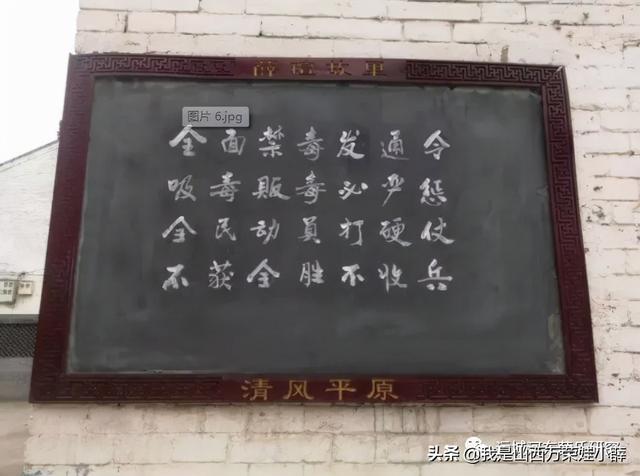 薛瑄故里
图片 6.jpg
全面禁毒发通令
吸毒贩毒必严惩
全民动员打硬仗
不获全胜不收兵
清风平原
头条 @我是山西万荣娃小薛